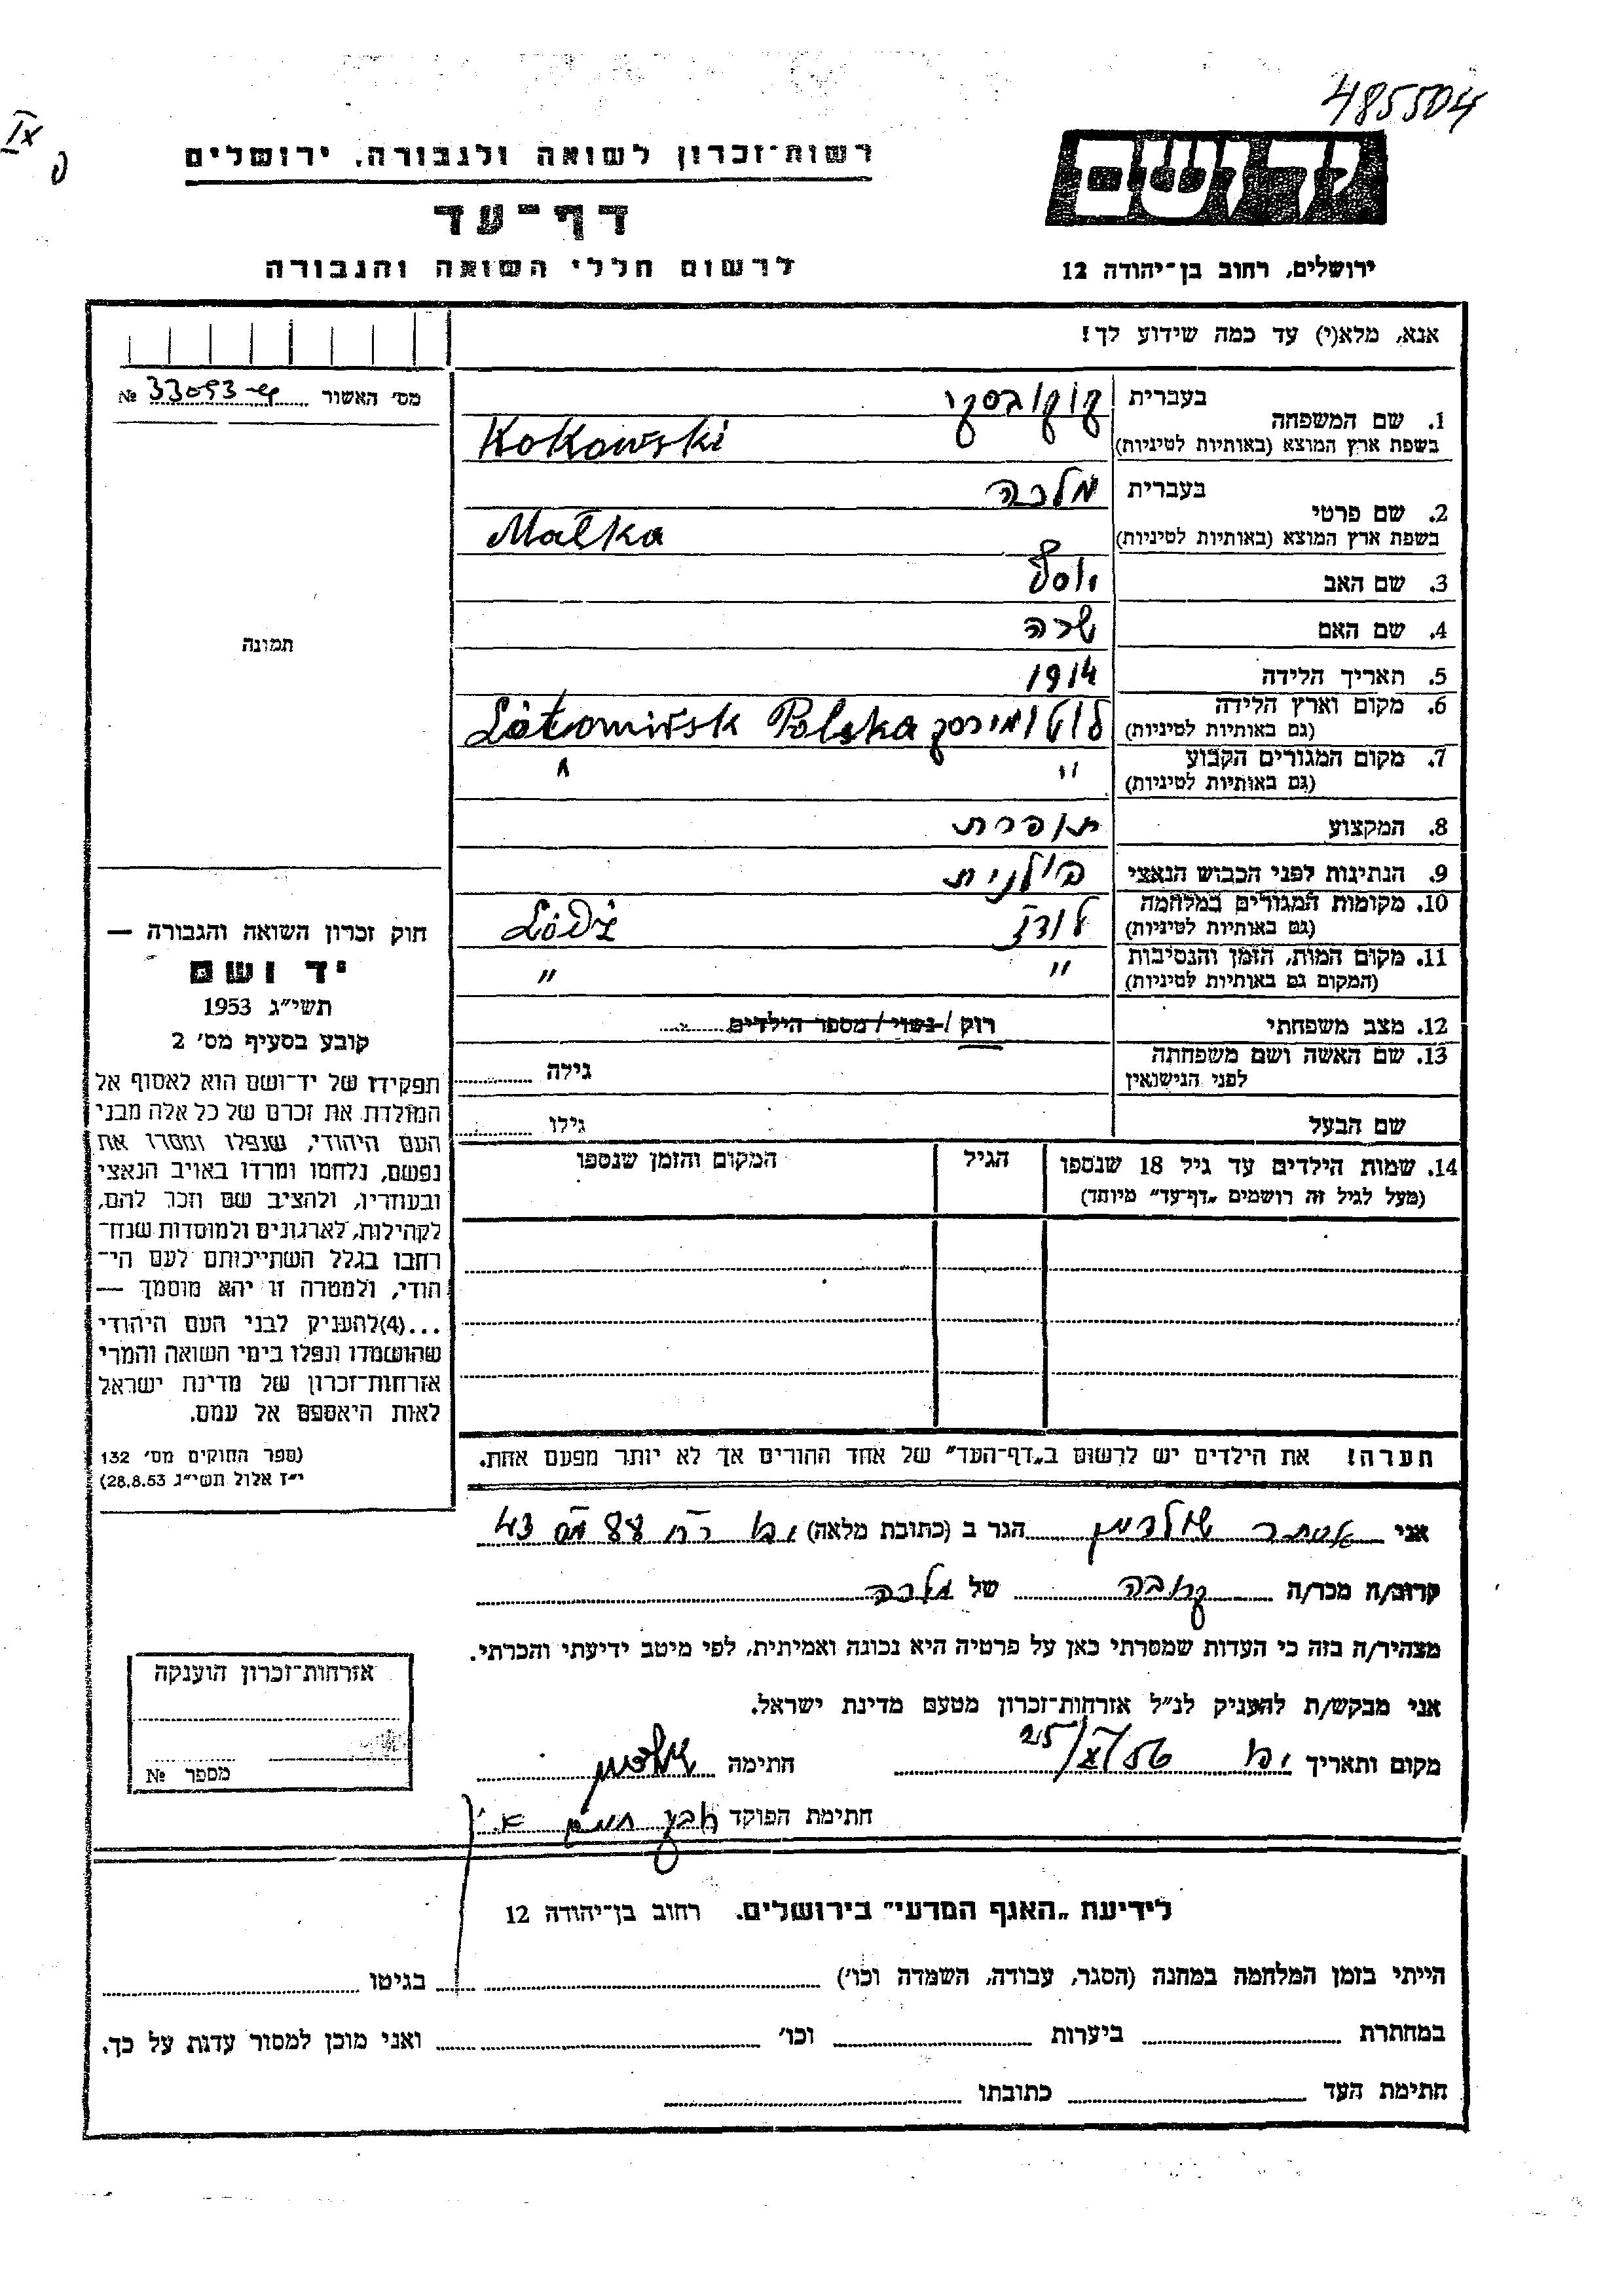 485504
IX
רשות־זכרון לשואה ולגבורה, ירושלים
יד ושם
דף־עד
לרשום חללי השואה והגבורה
ירושלים, רחוב בן־יהודה 12
אנא, מלא(י) עד כמה שידוע לך!
מס׳ האשור № 33093
1. שם המשפחה בעברית קוקובסקי
בשפת ארץ המוצא (באותיות לטיניות) Kokowski
2. שם פרטי בעברית מלכה
בשפת ארץ המוצא (באותיות לטיניות) Małka
3. שם האב יוסף
4. שם האם שרה
5. תאריך הלידה 1914
6. מקום וארץ הלידה לוטומירסק Lótomirsk Polska
(גם באותיות לטיניות)
7. מקום המגורים הקבוע " "
(גם באותיות לטיניות)
8. המקצוע תופרת
9. הנתינות לפני הכבוש הנאצי פולנית
10. מקומות המגורים במלחמה לודז Lódź
(גם באותיות לטיניות)
11. מקום המות, הזמן והנסיבות " "
(המקום גם באותיות לטיניות)
12. מצב משפחתי רוק / נשוי / מספר הילדים
13. שם האשה ושם משפחתה גילה
לפני הנישואין
שם הבעל גילו
14. שמות הילדים עד גיל 18 שנספו הגיל המקום והזמן שנספו
(מעל לגיל זה רושמים „דף־עד” מיוחד)
הערה! את הילדים יש לרשום ב„דף־העד” של אחד ההורים אך לא יותר מפעם אחת.
תמונה
חוק זכרון השואה והגבורה —
יד ושם
תשי״ג 1953
קובע בסעיף מס׳ 2
תפקידו של יד־ושם הוא לאסוף אל
המולדת את זכרם של כל אלה מבני
העם היהודי, שנפלו ומסרו את
נפשם, נלחמו ומרדו באויב הנאצי
ובעוזריו, ולהציב שם וזכר להם,
לקהילות, לארגונים ולמוסדות שנח־
רבו בגלל השתייכותם לעם הי־
הודי, ולמטרה זו יהא מוסמך —
...(4)להעניק לבני העם היהודי
שהושמדו ונפלו בימי השואה והמרי
אזרחות־זכרון של מדינת ישראל
לאות היאספם אל עמם.
(ספר החוקים מס׳ 132
י״ז אלול תשי״ג 28.8.53)
אני אסתר הגר ב (כתובת מלאה) 43
קרוב/ה מכר/ה קרובה של מלכה
מצהיר/ה בזה כי העדות שמסרתי כאן על פרטיה היא נכונה ואמיתית, לפי מיטב ידיעתי והכרתי.
אני מבקש/ת להעניק לנ״ל אזרחות־זכרון מטעם מדינת ישראל.
מקום ותאריך יפו 25/X/56 חתימה
חתימת הפוקד
אזרחות־זכרון הוענקה
מספר №
לידיעת „האגף המדעי” בירושלים. רחוב בן־יהודה 12
הייתי בזמן המלחמה במחנה (הסגר, עבודה, השמדה וכו׳) בגיטו
במחתרת ביערות וכו׳ ואני מוכן למסור עדות על כך.
חתימת העד כתובתו